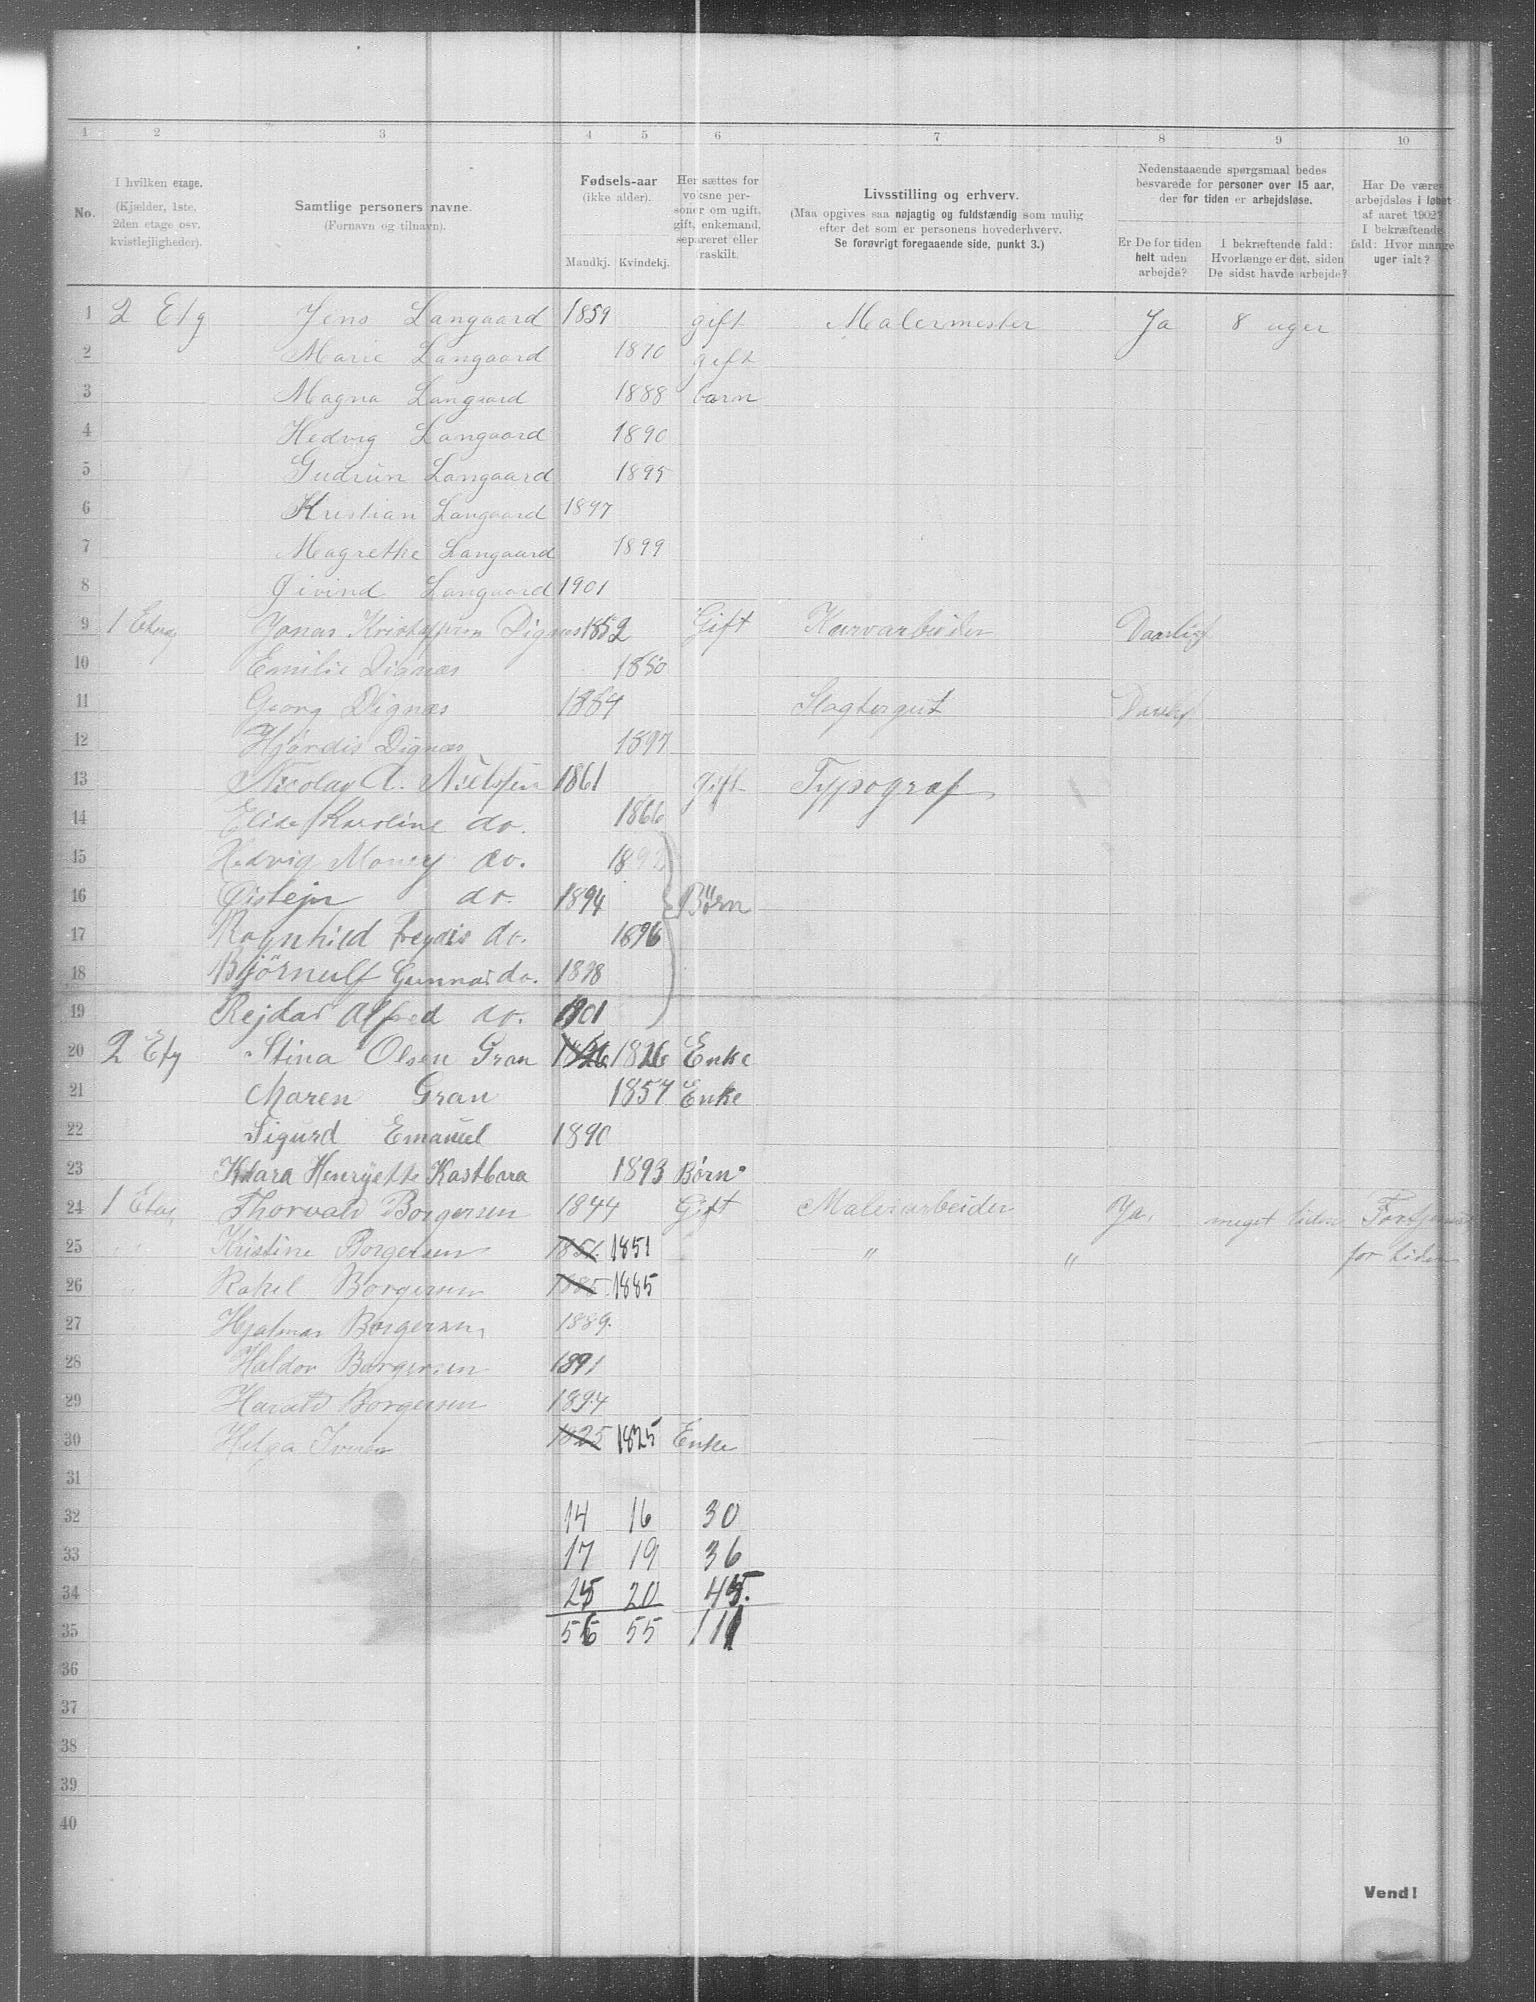 1 2 3 4 5 6 7 8 9 10
No.
I hvilken etage. (Kjælder, 1ste, 2den etage osv. kvistlejligheder).
Samtlige personers navne. (Fornavn og tilnavn).
Fødsels-aar (ikke alder). Mandkj. Kvindekj.
Her sættes for voksne personer om ugift, gift, enkemand, separeret eller fraskilt.
Livsstilling og erhverv. (Maa opgives saa nøjagtig og fuldstændig som mulig efter det som er personens hovederhverv. Se forøvrigt foregaaende side, punkt 3.)
Nedenstaaende spørgsmaal bedes besvarede for personer over 15 aar, der for tiden er arbejdsløse.
Er De for tiden helt uden arbejde?
I bekræftende fald: Hvorlænge er det, siden De sidst havde arbejde?
Har De været arbejdsløs i løbet af aaret 1902? I bekræftende fald: Hvor mange uger ialt?
1 2 Etg Jens Langaard 1859 gift Malermester Ja 8 uger
2 Marie Langaard 1870 gift
3 Magna Langaard 1888 barn
4 Hedvig Langaard 1890
5 Gudrun Langaard 1895
6 Kristian Langaard 1897
7 Magrethe Langaard 1899
8 Øivind Langaard 1901
9 1 Etag Jonas Kristoffersen Dignæs 1852 Gift Kurvarbeider
10 Emilie Dignæs 1850
11 Georg Dignæs 1884 Slagtergut
12 Hjørdis Dignæs 1897
13 Nicolay A. Nielssen 1861 gift Typograf
14 Elise Karoline do. 1866
15 Hedvig do. 1892
16 Øistejn do. 1894 Børn
17 Ragnhild Freydis do. 1896
18 Bjørnulf Gunnar do. 1898
19 Rejdar Alfred do. 1901
20 2 Etg Stina Olsen Gran 1826 1826 Enke
21 Maren Gran 1857 Enke
22 Sigurd Emanuel 1890
23 Klara Henryette Kastbara 1893 Børn
24 1 Etag Thorvald Borgersen 1844 Gift Malerarbeider Ja. meget liden
25 " " Kristine Borgersen 1851 1851 " " for tiden
26 " Rakel Borgersen 1885 1885
27 Hjalmar Borgersen 1889.
28 Haldor Borgersen 1891
29 Harald Borgersen 1894
30 Helga Iversen 1825 1825 Enke
31
32 14 16 30
33 17 19 36
34 25 20 45.
35 56 55 111
36
37
38
39
40
Vend!